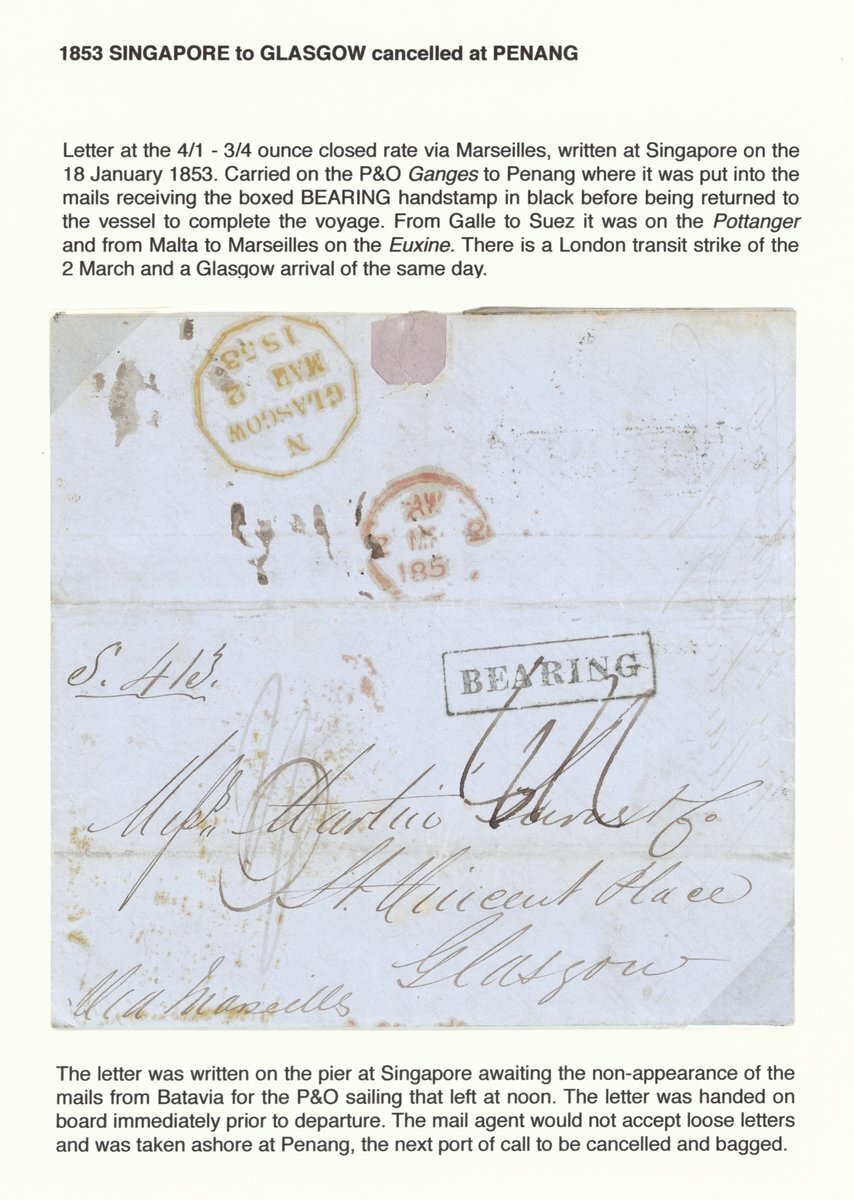 1853 SINGAPORE to GLASGOW cancelled at PENANG
Letter at the 4/1 - 3/4 ounce closed rate via Marseilles, written at Singapore on the
18 January 1853. Carried on the P&O Ganges to Penang where it was put into the
mails receiving the boxed BEARING handstamp in black before being returned to
the vessel to complete the voyage. From Galle to Suez it was on the Pottanger
and from Malta to Marseilles on the Euxine. There is a London transit strike of the
2 March and a Glasgow arrival of the same day.
N
GLASGOW
MAR 2
1853
AW
2 2
185
BEARING
Messrs Martin Turner & Co
St. Vincent Place
Glasgow
Via Marseilles
The letter was written on the pier at Singapore awaiting the non-appearance of the
mails from Batavia for the P&O sailing that left at noon. The letter was handed on
board immediately prior to departure. The mail agent would not accept loose letters
and was taken ashore at Penang, the next port of call to be cancelled and bagged.